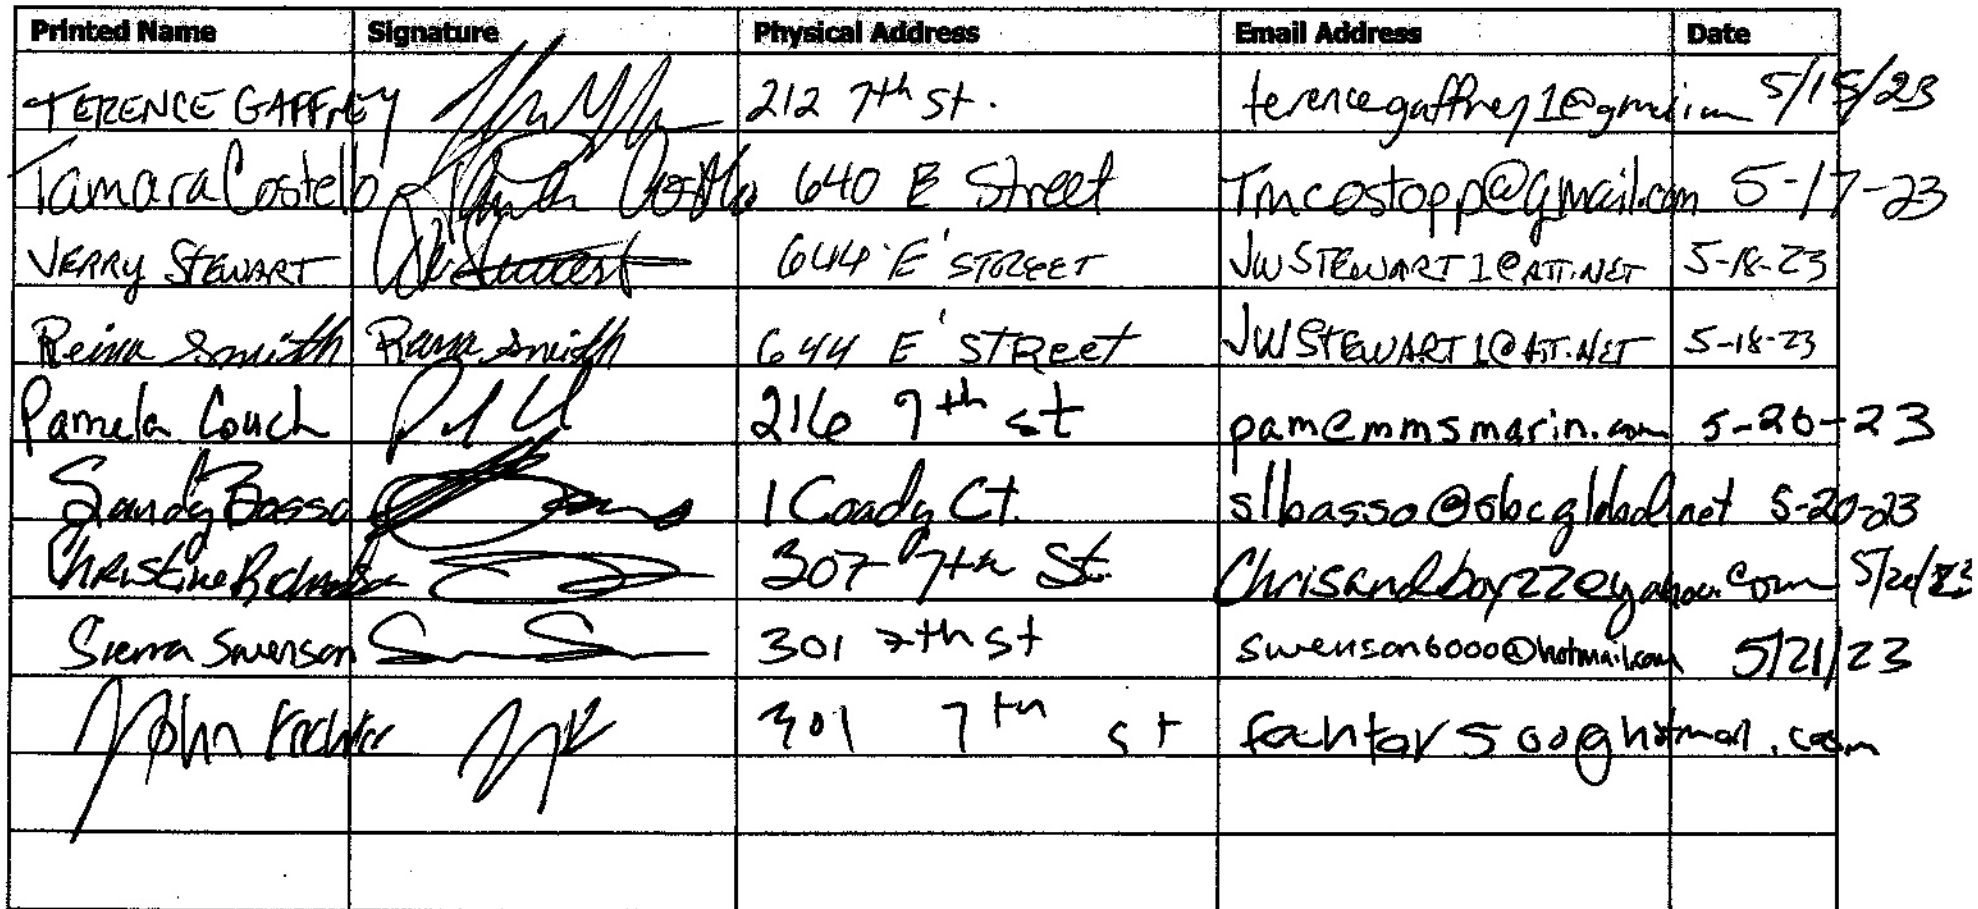 Printed Name Signature Physical Address Email Address Date
TERENCE GAFFNEY 212 7th St. terencegaffney1@gmail.com 5/15/23
Tamara Costello Tamara Costello 640 E Street Tmcostopp@gmail.com 5-17-23
JERRY STEWART 644 'E' STREET JWSTEWART1@ATT.NET 5-18-23
Reina Smith Reina Smith 644 E' STREET JWSTEWART1@ATT.NET 5-18-23
Pamela Couch 216 7th st pam@mmsmarin.com 5-20-23
Sandy Basso 1 Coady Ct. slbasso@sbcglobal.net 5-20-23
Christine 307 7th St. Chrisandboyzz@yahoo.com
Sierra Swenson 301 7th st swenson6000@hotmail.com 5/21/23
John 301 7th st